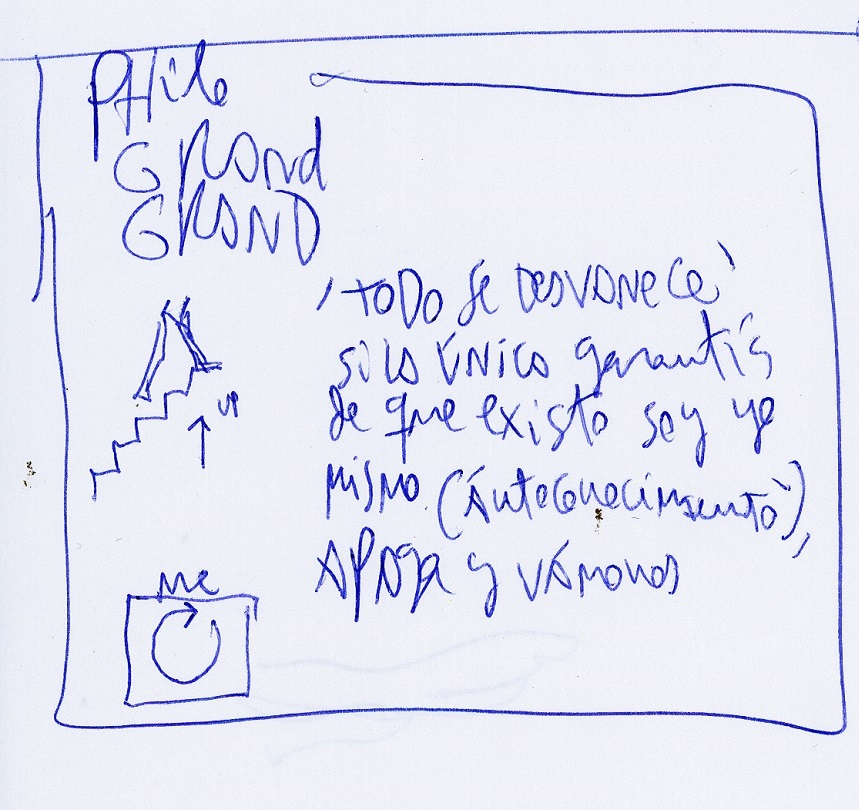 PHilo
GRAnd
GRAND
'TODO SE DESVANECE'
si lo único garantís
de que existo soy yo
mismo (Autoconocimiento),
APAga y VÁMONOS
UP
ME